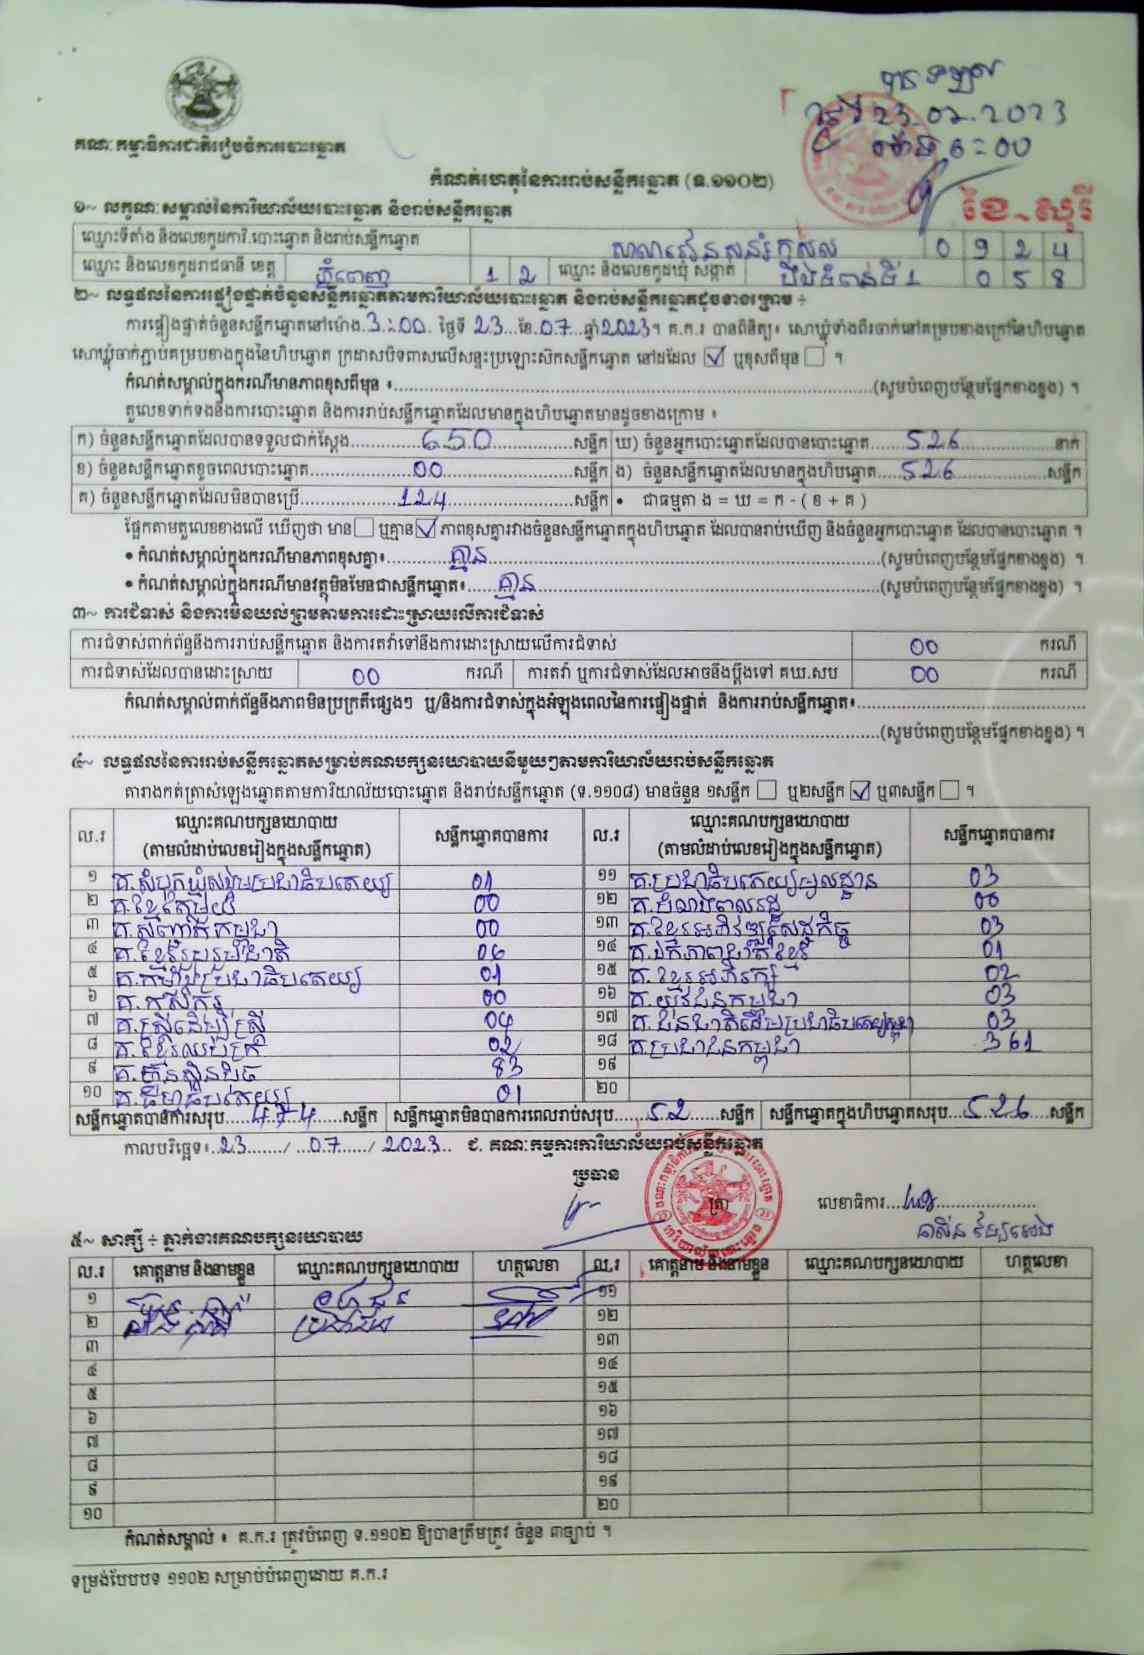 បាន ទទួល
ថ្ងៃទី 23.07.2023
ម៉ោង 6:00
ខៃ សុរី
គណៈកម្មាធិការជាតិរៀបចំការបោះឆ្នោត
កំណត់ហេតុនៃការរាប់សន្លឹកឆ្នោត (ទ.១១០២)
១~ លក្ខណៈសម្គាល់នៃការិយាល័យបោះឆ្នោត និងរាប់សន្លឹកឆ្នោត
ឈ្មោះទីតាំង និងលេខកូដការិ.បោះឆ្នោត និងរាប់សន្លឹកឆ្នោត 0 9 2 4
ឈ្មោះ និងលេខកូដរាជធានី ខេត្ត ភ្នំពេញ 1 2 ឈ្មោះ និងលេខកូដឃុំ សង្កាត់ បឹងទំពុនទី1 0 5 8
២~ លទ្ធផលនៃការផ្ទៀងផ្ទាត់ចំនួនសន្លឹកឆ្នោតតាមការិយាល័យបោះឆ្នោត និងរាប់សន្លឹកឆ្នោតដូចខាងក្រោម ÷
ការផ្ទៀងផ្ទាត់ចំនួនសន្លឹកឆ្នោតនៅម៉ោង.3:00. ថ្ងៃទី 23...ខែ.07...ឆ្នាំ2023។ គ.ក.រ បានពិនិត្យ៖ សោឃ្លុំទាំងពីរចាក់នៅគម្របខាងក្រៅនៃហិបឆ្នោត
សោឃ្លុំចាក់ភ្ជាប់គម្របខាងក្នុងនៃហិបឆ្នោត ក្រដាសបិទពាសលើសន្ទះប្រឡោះសិកសន្លឹកឆ្នោត នៅដដែល ☑ ឬខុសពីមុន ☐ ។
កំណត់សម្គាល់ក្នុងករណីមានភាពខុសពីមុន ៖..........(សូមបំពេញបន្ថែមផ្នែកខាងខ្នង) ។
តួលេខទាក់ទងនឹងការបោះឆ្នោត និងការរាប់សន្លឹកឆ្នោតដែលមានក្នុងហិបឆ្នោតមានដូចខាងក្រោម ៖
ក) ចំនួនសន្លឹកឆ្នោតដែលបានទទួលជាក់ស្តែង.....650.....សន្លឹក ឃ) ចំនួនអ្នកបោះឆ្នោតដែលបានបោះឆ្នោត.....526.....នាក់
ខ) ចំនួនសន្លឹកឆ្នោតខូចពេលបោះឆ្នោត.....00.....សន្លឹក ង) ចំនួនសន្លឹកឆ្នោតដែលមានក្នុងហិបឆ្នោត.....526.....សន្លឹក
គ) ចំនួនសន្លឹកឆ្នោតដែលមិនបានប្រើ.....124.....សន្លឹក • ជាធម្មតា ង = ឃ = ក - ( ខ + គ )
ផ្អែកតាមតួលេខខាងលើ ឃើញថា មាន☐ ឬគ្មាន☑ ភាពខុសគ្នារវាងចំនួនសន្លឹកឆ្នោតក្នុងហិបឆ្នោត ដែលបានរាប់ឃើញ និងចំនួនអ្នកបោះឆ្នោត ដែលបានបោះឆ្នោត ។
• កំណត់សម្គាល់ក្នុងករណីមានភាពខុសគ្នា៖.....គ្មាន.....(សូមបំពេញបន្ថែមផ្នែកខាងខ្នង) ។
• កំណត់សម្គាល់ក្នុងករណីមានវត្ថុមិនមែនជាសន្លឹកឆ្នោត៖.....គ្មាន.....(សូមបំពេញបន្ថែមផ្នែកខាងខ្នង) ។
៣~ ការជំទាស់ និងការមិនយល់ព្រមតាមការដោះស្រាយលើការជំទាស់
ការជំទាស់ពាក់ព័ន្ធនឹងការរាប់សន្លឹកឆ្នោត និងការតវ៉ាទៅនឹងការដោះស្រាយលើការជំទាស់ 00 ករណី
ការជំទាស់ដែលបានដោះស្រាយ 00 ករណី ការតវ៉ា ឬការជំទាស់ដែលអាចនឹងប្តឹងទៅ គឃ.សប 00 ករណី
កំណត់សម្គាល់ពាក់ព័ន្ធនឹងភាពមិនប្រក្រតីផ្សេងៗ ឬ/និងការជំទាស់ក្នុងអំឡុងពេលនៃការផ្ទៀងផ្ទាត់ និងការរាប់សន្លឹកឆ្នោត៖..........
..........(សូមបំពេញបន្ថែមផ្នែកខាងខ្នង) ។
៤~ លទ្ធផលនៃការរាប់សន្លឹកឆ្នោតសម្រាប់គណបក្សនយោបាយនីមួយៗតាមការិយាល័យរាប់សន្លឹកឆ្នោត
តារាងកត់ត្រាសំឡេងឆ្នោតតាមការិយាល័យបោះឆ្នោត និងរាប់សន្លឹកឆ្នោត (ទ.១១០៨) មានចំនួន ១សន្លឹក ☐ ឬ២សន្លឹក ☑ ឬ៣សន្លឹក ☐ ។
ល.រ ឈ្មោះគណបក្សនយោបាយ (តាមលំដាប់លេខរៀងក្នុងសន្លឹកឆ្នោត) សន្លឹកឆ្នោតបានការ ល.រ ឈ្មោះគណបក្សនយោបាយ (តាមលំដាប់លេខរៀងក្នុងសន្លឹកឆ្នោត) សន្លឹកឆ្នោតបានការ
១ គ.សំបុកឃ្មុំសង្គមប្រជាធិបតេយ្យ 01 ១១ គ.ប្រជាធិបតេយ្យមូលដ្ឋាន 03
២ គ.ខ្មែរតែមួយ 00 ១២ គ.បំណាច់ពលរដ្ឋ 00
៣ គ.សញ្ជាតិកម្ពុជា 00 ១៣ គ.ខ្មែរអភិវឌ្ឍន៍សេដ្ឋកិច្ច 03
៤ គ.ខ្មែររួបរួមជាតិ 06 ១៤ គ.ឯកភាពជាតិខ្មែរ 01
៥ គ.កម្លាំងប្រជាធិបតេយ្យ 01 ១៥ គ.ខ្មែរអភិរក្ស 02
៦ គ.កសិករ 00 ១៦ គ.យុវជនកម្ពុជា 03
៧ គ.ស្រ្តីដើម្បីស្រ្តី 04 ១៧ គ.ជនជាតិដើមប្រជាធិបតេយ្យកម្ពុជា 03
៨ គ.ខ្មែរឈប់ក្រ 02 ១៨ គ.ប្រជាជនកម្ពុជា 361
៩ គ.ហ៊្វុនស៊ិនប៉ិច 83 ១៩
១០ គ.ធម្មាធិបតេយ្យ 01 ២០
សន្លឹកឆ្នោតបានការសរុប.....474.....សន្លឹក សន្លឹកឆ្នោតមិនបានការពេលរាប់សរុប.....52.....សន្លឹក សន្លឹកឆ្នោតក្នុងហិបឆ្នោតសរុប.....526.....សន្លឹក
កាលបរិច្ឆេទ៖..23....../ ...07....../ 2023.. ជ. គណៈកម្មការការិយាល័យរាប់សន្លឹកឆ្នោត
ប្រធាន
ត្រា
លេខាធិការ..........
៥~ សាក្សី ÷ ភ្នាក់ងារគណបក្សនយោបាយ
ល.រ គោត្តនាម និងនាមខ្លួន ឈ្មោះគណបក្សនយោបាយ ហត្ថលេខា ល.រ គោត្តនាម និងនាមខ្លួន ឈ្មោះគណបក្សនយោបាយ ហត្ថលេខា
១ ១១
២ ប្រជាជន ១២
៣ ១៣
៤ ១៤
៥ ១៥
៦ ១៦
៧ ១៧
៨ ១៨
៩ ១៩
១០ ២០
កំណត់សម្គាល់ ៖ គ.ក.រ ត្រូវបំពេញ ទ.១១០២ ឱ្យបានត្រឹមត្រូវ ចំនួន ៣ច្បាប់ ។
ទម្រង់បែបបទ ១១០២ សម្រាប់បំពេញដោយ គ.ក.រ